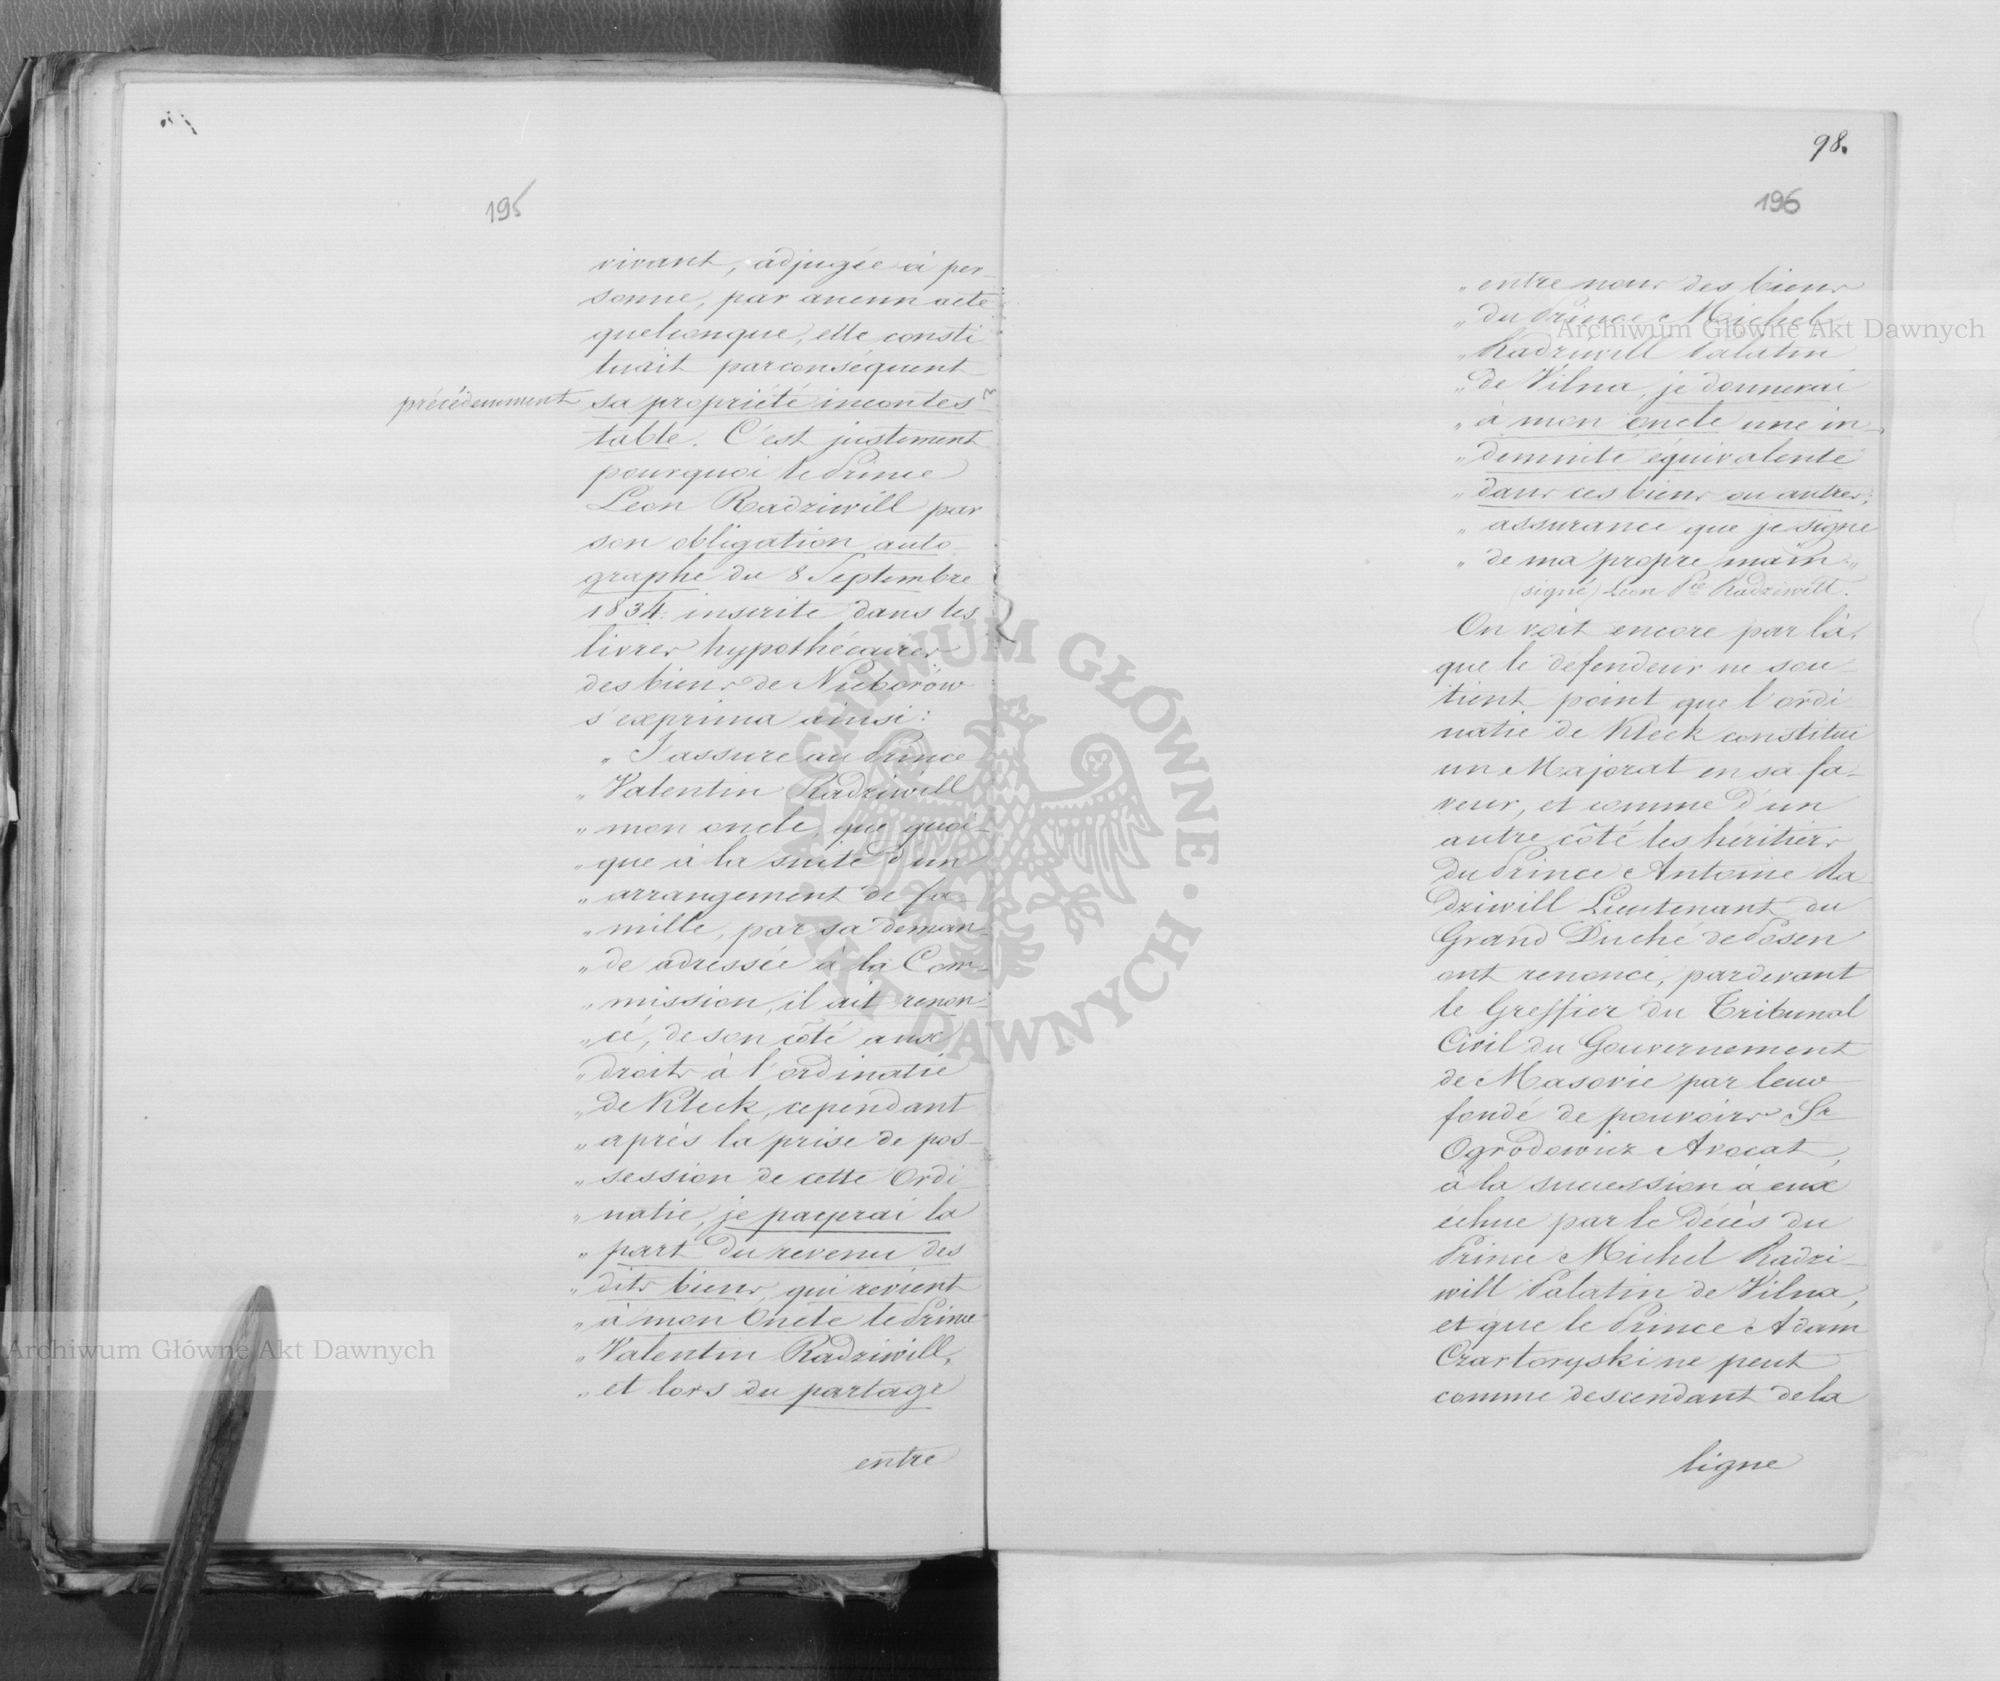 195
vivant, adjugée à per-
sonne, par aucun acte
quelconque, elle consti
tuait parconséquent
précédemment
sa propriété incontes-
table. C'est justement
pourquoi le Prince
Léon Radziwill par
son obligation auto-
graphe du 8 Septembre
1834. inscrite dans les
livres hypothécaires
des biens de Nieborów
s'exprima ainsi:
„ J'assure au Prince
„ Valentin Radziwill
„ mon oncle, que quoi-
„ que à la suite d'un
„ arrangement de fa-
„ mille, par sa deman-
„ de adressée à la Com-
„ mission, il ait renon-
„ cé, de son côté aux
„ droits à l'ordinatie
„ de Kleck, cependant
„ après la prise de pos-
„ session de cette Ordi-
„ natie, je payerai la
„ part du revenu des
„ dits biens, qui revient
„ à mon Oncle le Prince
„ Valentin Radziwill,
„ et lors du partage
entre
98.
196
„ entre nous des biens
„ du Prince Michel
„ Radziwill Palatin
„ de Vilna, je donnerai
„ à mon oncle une in-
„ demnité équivalente
„ dans ces biens ou autres;
„ assurance que je signe
„ de ma propre main „
(signé) Léon Pce Radziwill.
On voit encore par là,
que le défendeur ne sou-
tient point que l'ordi
natie de Kleck constitue
un Majorat en sa fa-
veur, et comme d'un
autre côté les héritiers
du Prince Antoine Ra
dziwill Lieutenant du
Grand Duché de Posen
ont renoncé, pardevant
le Greffier du Tribunal
Civil du Gouvernement
de Masovie par leur
fondé de pouvoirs Sr
Ogrodowicz Avocat,
à la succession à eux
échue par le décès du
Prince Michel Radzi-
will Palatin de Vilna,
et que le Prince Adam
Czartoryski ne peut
comme descendant de la
ligne
Archiwum Główne Akt Dawnych
Archiwum Główne Akt Dawnych
ARCHIWUM GŁÓWNE · AKT DAWNYCH ·